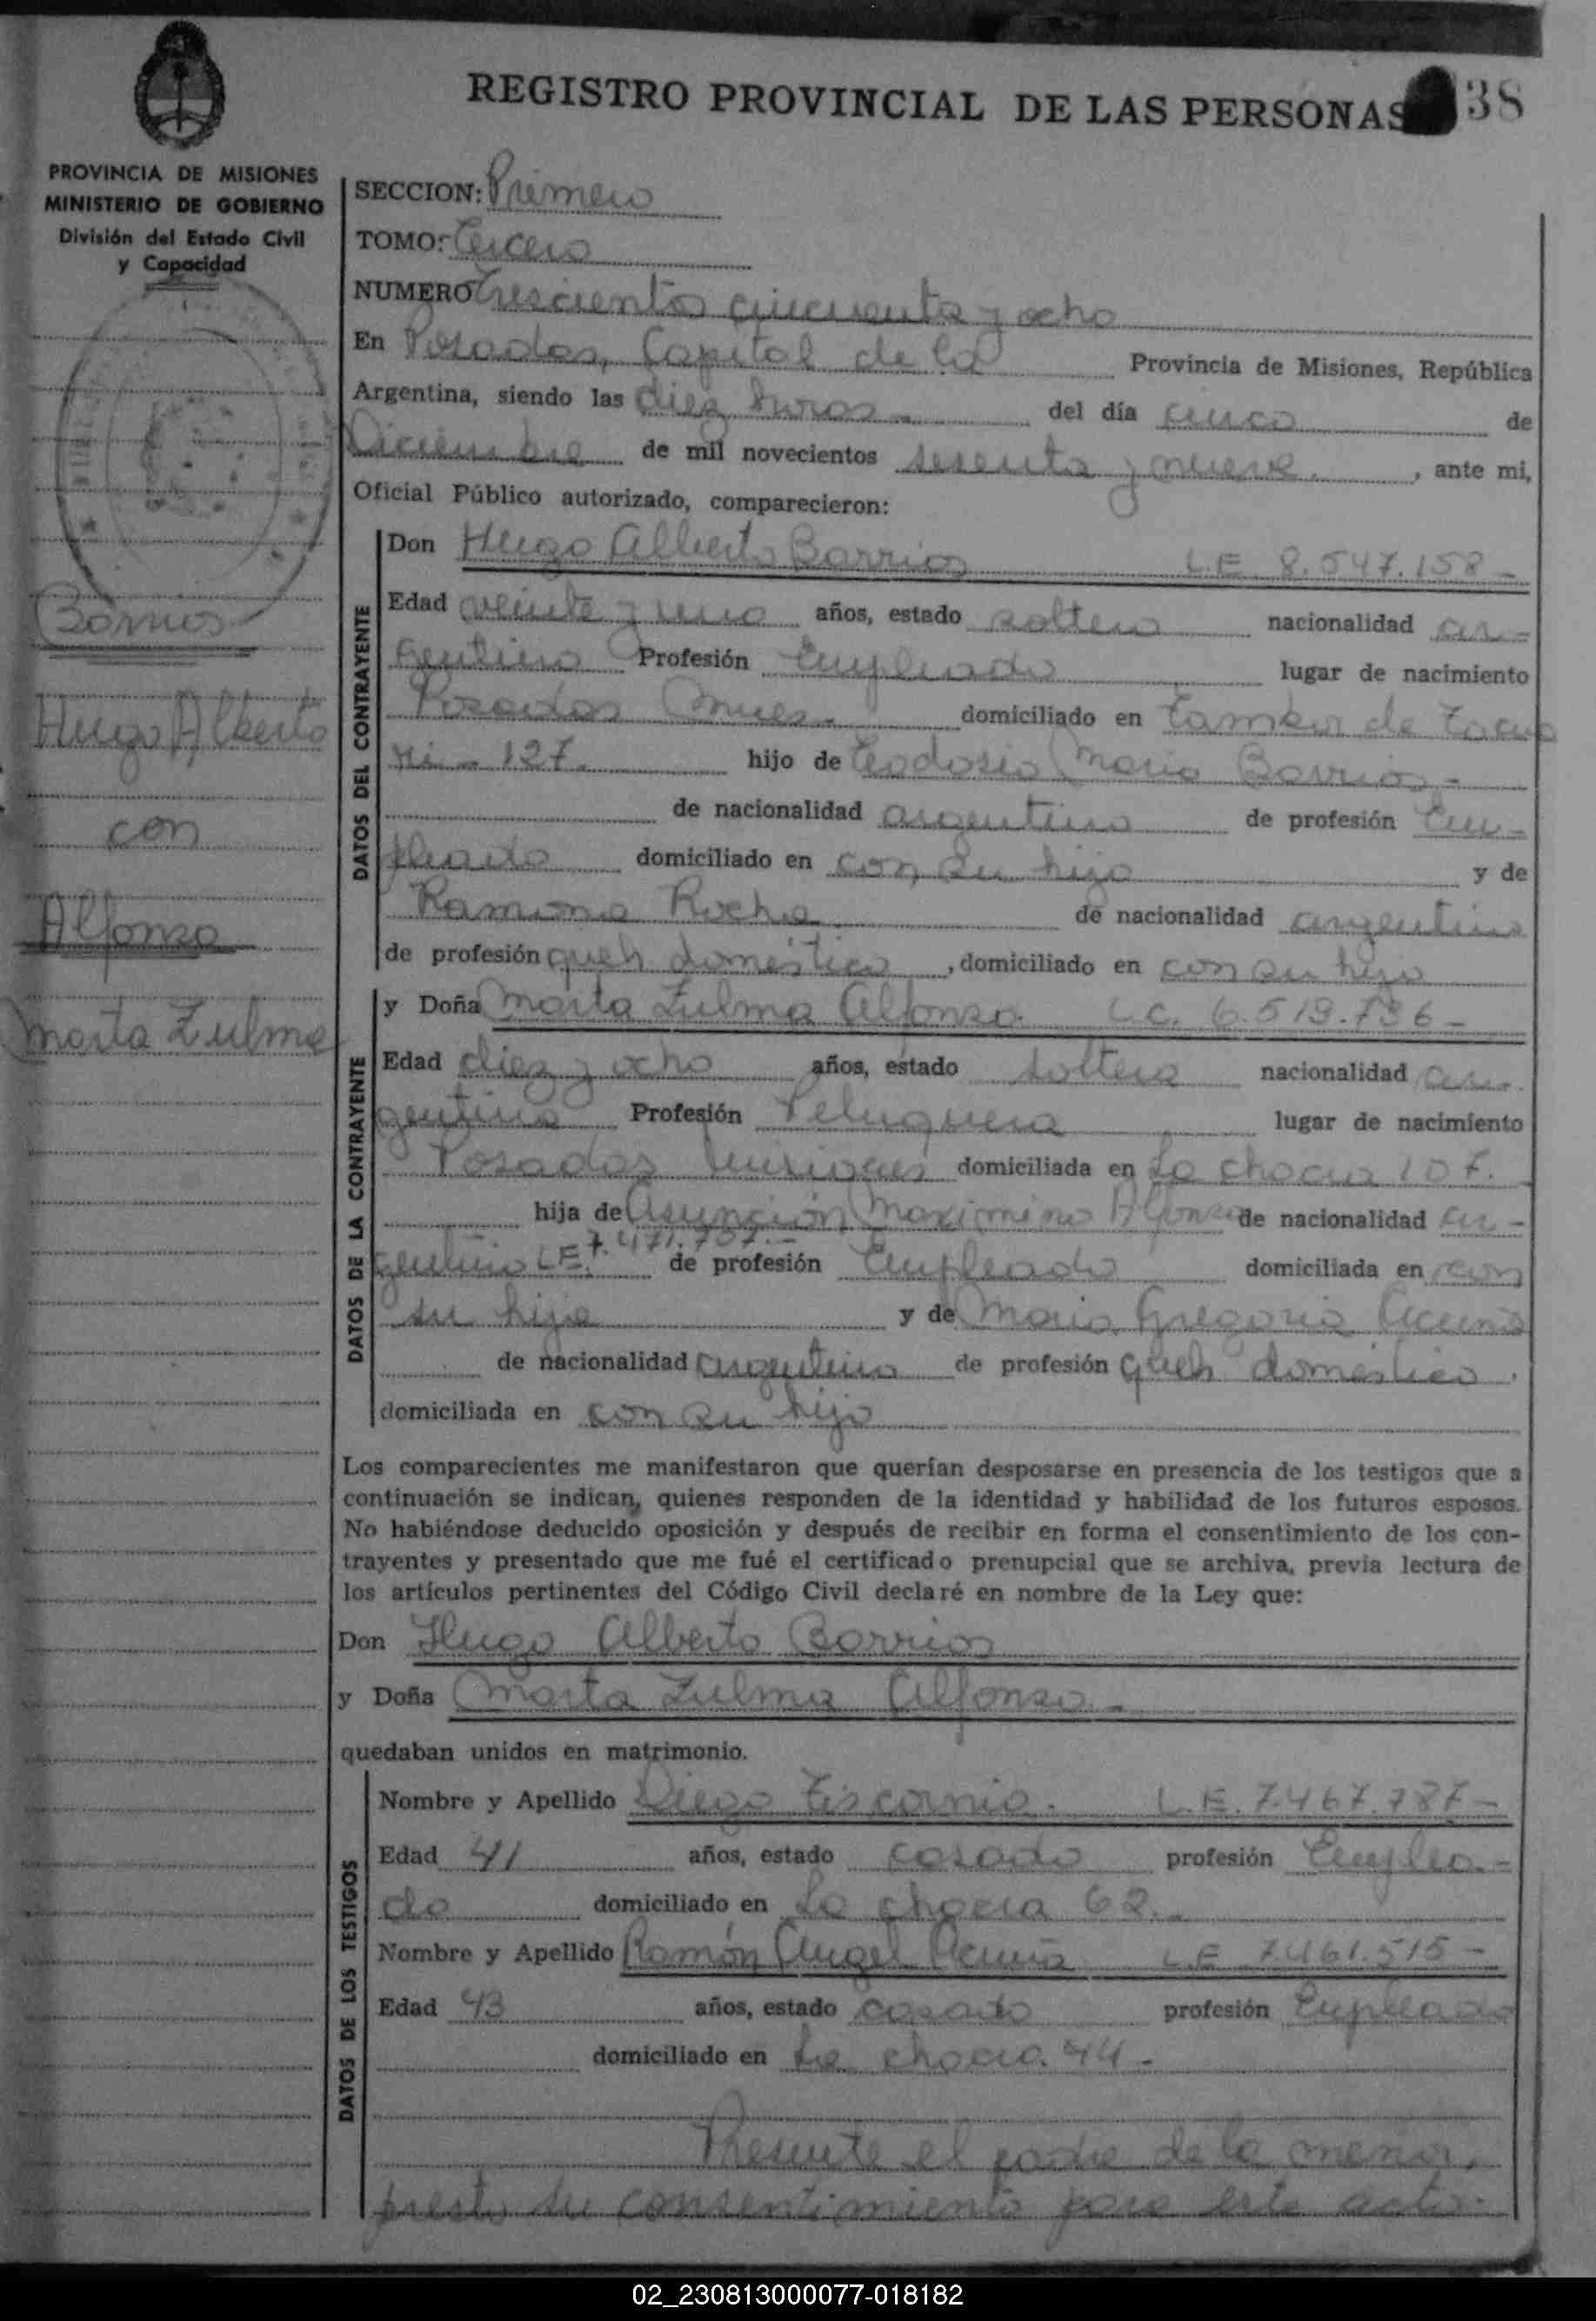 REGISTRO PROVINCIAL DE LAS PERSONAS 38
PROVINCIA DE MISIONES
MINISTERIO DE GOBIERNO
División del Estado Civil
y Capacidad
Barrios
Hugo Alberto
con
Alfonzo
Marta Zulma
SECCION: Primero
TOMO: Tercero
NUMERO Trescientos cincuenta y ocho
En Posadas, Capital de la Provincia de Misiones, República
Argentina, siendo las diez horas del día cinco de
Diciembre de mil novecientos sesenta y nueve, ante mi,
Oficial Público autorizado, comparecieron:
DATOS DEL CONTRAYENTE
Don Hugo Alberto Barrios L.E. 8.547.158-
Edad veinte y uno años, estado soltero nacionalidad ar-
gentino Profesión Empleado lugar de nacimiento
Posadas Mnes. domiciliado en Tambor de Tacua
rí - 127. hijo de Teodosio Mario Barrios-
de nacionalidad argentino de profesión Em-
pleado domiciliado en con su hijo y de
Ramona Rocha de nacionalidad argentina
de profesión queh domestico, domiciliado en con su hijo
DATOS DE LA CONTRAYENTE
y Doña Marta Zulma Alfonzo L.C. 6.519.736-
Edad diez y ocho años, estado soltera nacionalidad ar-
gentina Profesión Peluquera lugar de nacimiento
Posadas Misiones domiciliada en La chacra 107.
hija de Asunción Maximino Alfonzo de nacionalidad ar-
gentino LE 7.471.757.- de profesión Empleado domiciliada en con
su hija y de Maria Gregoria Acuña
de nacionalidad argentina de profesión queh domestico.
domiciliada en con su hija
Los comparecientes me manifestaron que querían desposarse en presencia de los testigos que a
continuación se indican, quienes responden de la identidad y habilidad de los futuros esposos.
No habiéndose deducido oposición y después de recibir en forma el consentimiento de los con-
trayentes y presentado que me fué el certificado prenupcial que se archiva, previa lectura de
los artículos pertinentes del Código Civil declaré en nombre de la Ley que:
Don Hugo Alberto Barrios
y Doña Marta Zulma Alfonzo.-
quedaban unidos en matrimonio.
DATOS DE LOS TESTIGOS
Nombre y Apellido Diego Tiscornia. L.E. 7.467.787-
Edad 41 años, estado casado profesión Emplea-
do domiciliado en La chacra 62.-
Nombre y Apellido Ramón Angel Acuña L.E 7.461.515-
Edad 43 años, estado casado profesión Empleado
domiciliado en La chacra 44-
Presente el padre de la menor,
presta su consentimiento para este acto.
02_230813000077-018182